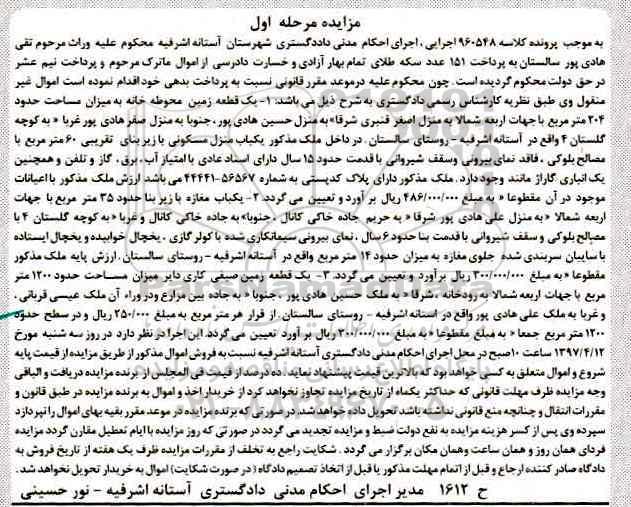 مزایده مرحله اول
به موجب پرونده کلاسه ۹۶۰۵۴۸ اجرایی ، اجرای احکام مدنی دادگستری شهرستان آستانه اشرفیه محکوم علیه وراث مرحوم تقی
هادی پور سالستان به پرداخت ۱۵۱ عدد سکه طلای تمام بهار آزادی و خسارت دادرسی از اموال ماترک مرحوم و پرداخت نیم عشر
در حق دولت محکوم گردیده است . چون محکوم علیه درموعد مقرر قانونی نسبت به پرداخت بدهی خود اقدام ننموده است اموال غیر
منقول وی طبق نظریه کارشناس رسمی دادگستری به شرح ذیل می باشد: ۱- یک قطعه زمین محوطه خانه به میزان مساحت حدود
۲۰۴ متر مربع با جهات اربعه شمالا به منزل اصغر قنبری شرقا« به منزل حسین هادی پور ، جنوبا به منزل صفر هادی پور غربا « به کوچه
گلستان ۴ واقع در آستانه اشرفیه - روستای سالستان . در داخل ملک مذکور یکباب منزل مسکونی با زیر بنای تقریبی ۶۰ متر مربع با
مصالح بلوکی ، فاقد نمای بیرونی وسقف شیروانی با قدمت حدود ۱۵ سال دارای اسناد عادی با امتیاز آب ، برق ، گاز و تلفن و همچنین
یک انباری گاراژ مانند وجود دارد. ملک مذکور دارای پلاک کدپستی به شماره ۵۶۵۶۷-۴۴۴۴۱ می باشد ارزش ملک مذکور با اعیانات
موجود در آن مقطوعا « به مبلغ ۴۸۶/۰۰۰/۰۰۰ ریال بر آورد و تعیین می گردد. ۲- یکباب مغازه با زیر بنا حدود ۳۵ متر مربع با جهات
اربعه شمالا « به منزل علی هادی پور شرقا « به حریم جاده خاکی کانال ، جنوبا» به جاده خاکی کانال و غربا « به کوچه گلستان ۴ با
مصالح بلوکی و سقف شیروانی با قدمت بنا حدود ۶ سال ، نمای بیرونی سیمانکاری شده با کولر گازی ، یخچال خوابیده و یخچال ایستاده
با سایبان سربندی شده جلوی مغازه به میزان حدود ۱۴ متر مربع واقع در آستانه اشرفیه - روستای سالستان . ارزش پایه ملک مذکور
مقطوعا « به مبلغ ۳۰۰/۰۰۰/۰۰۰ ریال برآورد و تعیین می گردد. ۳- یک قطعه زمین صیفی کاری دایر میزان مساحت حدود ۱۲۰۰ متر
مربع با جهات اربعه شمالا به رودخانه ، شرقا « به ملک حسین هادی پور ، جنوبا « به جاده بین مزارع ودر وراء آن ملک عیسی قربانی ،
و غربا به ملک علی هادی پور واقع در آستانه اشرفیه - روستای سالستان . از قرار هر متر مربع به مبلغ ۲۵۰/۰۰۰ ریال و در سطح حدود
۱۲۰۰ متر مربع جمعا « به مبلغ مقطوعا « به مبلغ ۳۰۰/۰۰۰/۰۰۰ ریال بر آورد تعیین می گردد. این اجرا در نظر دارد در روز سه شنبه مورخ
۱۳۹۷/۴/۱۲ ساعت ۱۰صبح در محل اجرای احکام مدنی دادگستری آستانه اشرفیه نسبت به فروش اموال مذکور از طریق مزایده از قیمت پایه
شروع و اموال متعلق به کسی خواهد بود که بالاترین قیمت پیشنهاد نماید ، ده درصد از قیمت فی المجلس از برنده مزایده دریافت و الباقی
وجه مزایده ظرف مهلت قانونی که حداکثر یکماه از تاریخ مزایده تجاوز نخواهد کرد از خریدار اخذ و اموال به برنده مزایده در طبق قانون و
مقررات انتقال و چنانچه منع قانونی نداشته باشد تحویل داده خواهد شد. در صورتی که برنده مزایده در موعد مقرر بقیه بهای اموال را نپردازد
سپرده وی پس از کسر هزینه مزایده به نفع دولت ضبط و مزایده تجدید می گردد در صورتی که روز مزایده با ایام تعطیل مقارن گردد مزایده
فردای همان روز و همان ساعت وهمان مکان برگزار می گردد . شکایت راجع به تخلف از مقررات مزایده ظرف یک هفته از تاریخ فروش به
دادگاه صادر کننده ارجاع و قبل از اتمام مهلت مذکور یا قبل از اتخاذ تصمیم دادگاه ( در صورت شکایت) اموال به خریدار تحویل نخواهد شد .
ح ۱۶۱۲ مدیر اجرای احکام مدنی دادگستری آستانه اشرفیه - نور حسینی